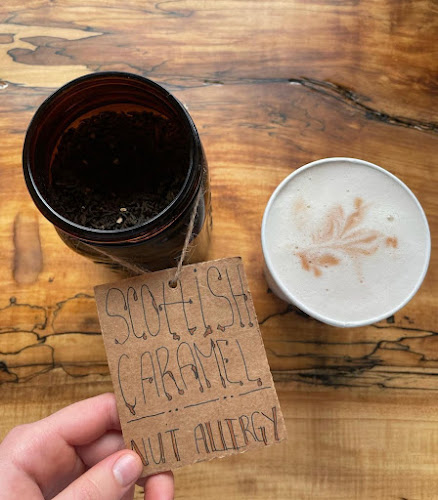 SCOTTISH
CARAMEL
NUT ALLERGY